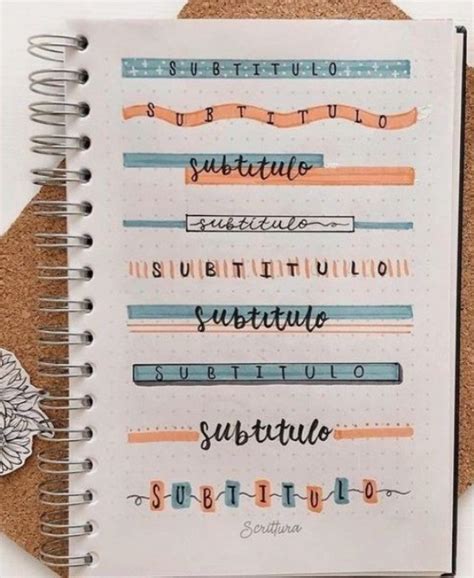 SUBTITULO
SUBTITULO
subtitulo
subtitulo
SUBTITULO
subtitulo
SUBTITULO
subtitulo
SUBTITULO
Scrittura